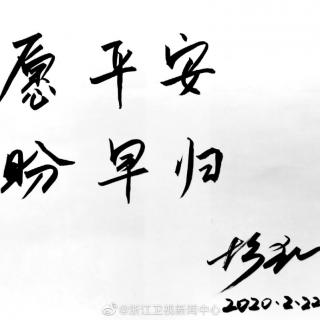 愿平安
盼早归
2020.2.22
@浙江卫视新闻中心